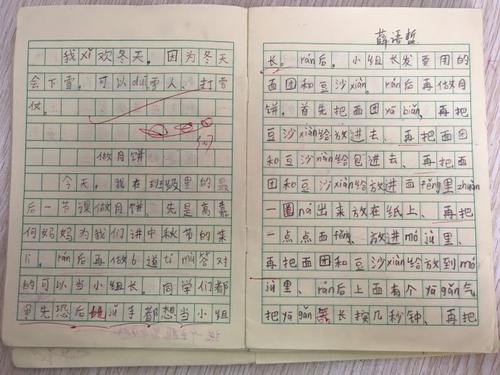 我xǐ欢冬天。因为冬天
会下雪。可以duī雪人、打雪
仗。
做月饼
今天。我在班级里的最
后一节课做月饼、先是高嘉
何妈妈为我们讲中秋节的来
lì。rán后再做6道tí mù答对
的可以当小组长。同学们都
争先恐后jǔ手都想当小组
薛语哲
长。rán后。小组长发要用的
面团和豆沙xiàn。rán后再做月
饼。首先把面团yā biǎn、再把
豆沙xiàn给放进去、再把面团
和豆沙xiàn给包进去、再把面
团和豆沙xiàn给放进面fěng里zhuàn
一圈ná出来放在纸上、再把
一点点面fěng、放进mó jù里、
再把面团和豆沙xiàn给放到mó
jù里、rán后上面有个yā gǎn气
把yā gǎn长按几秒钟、再把